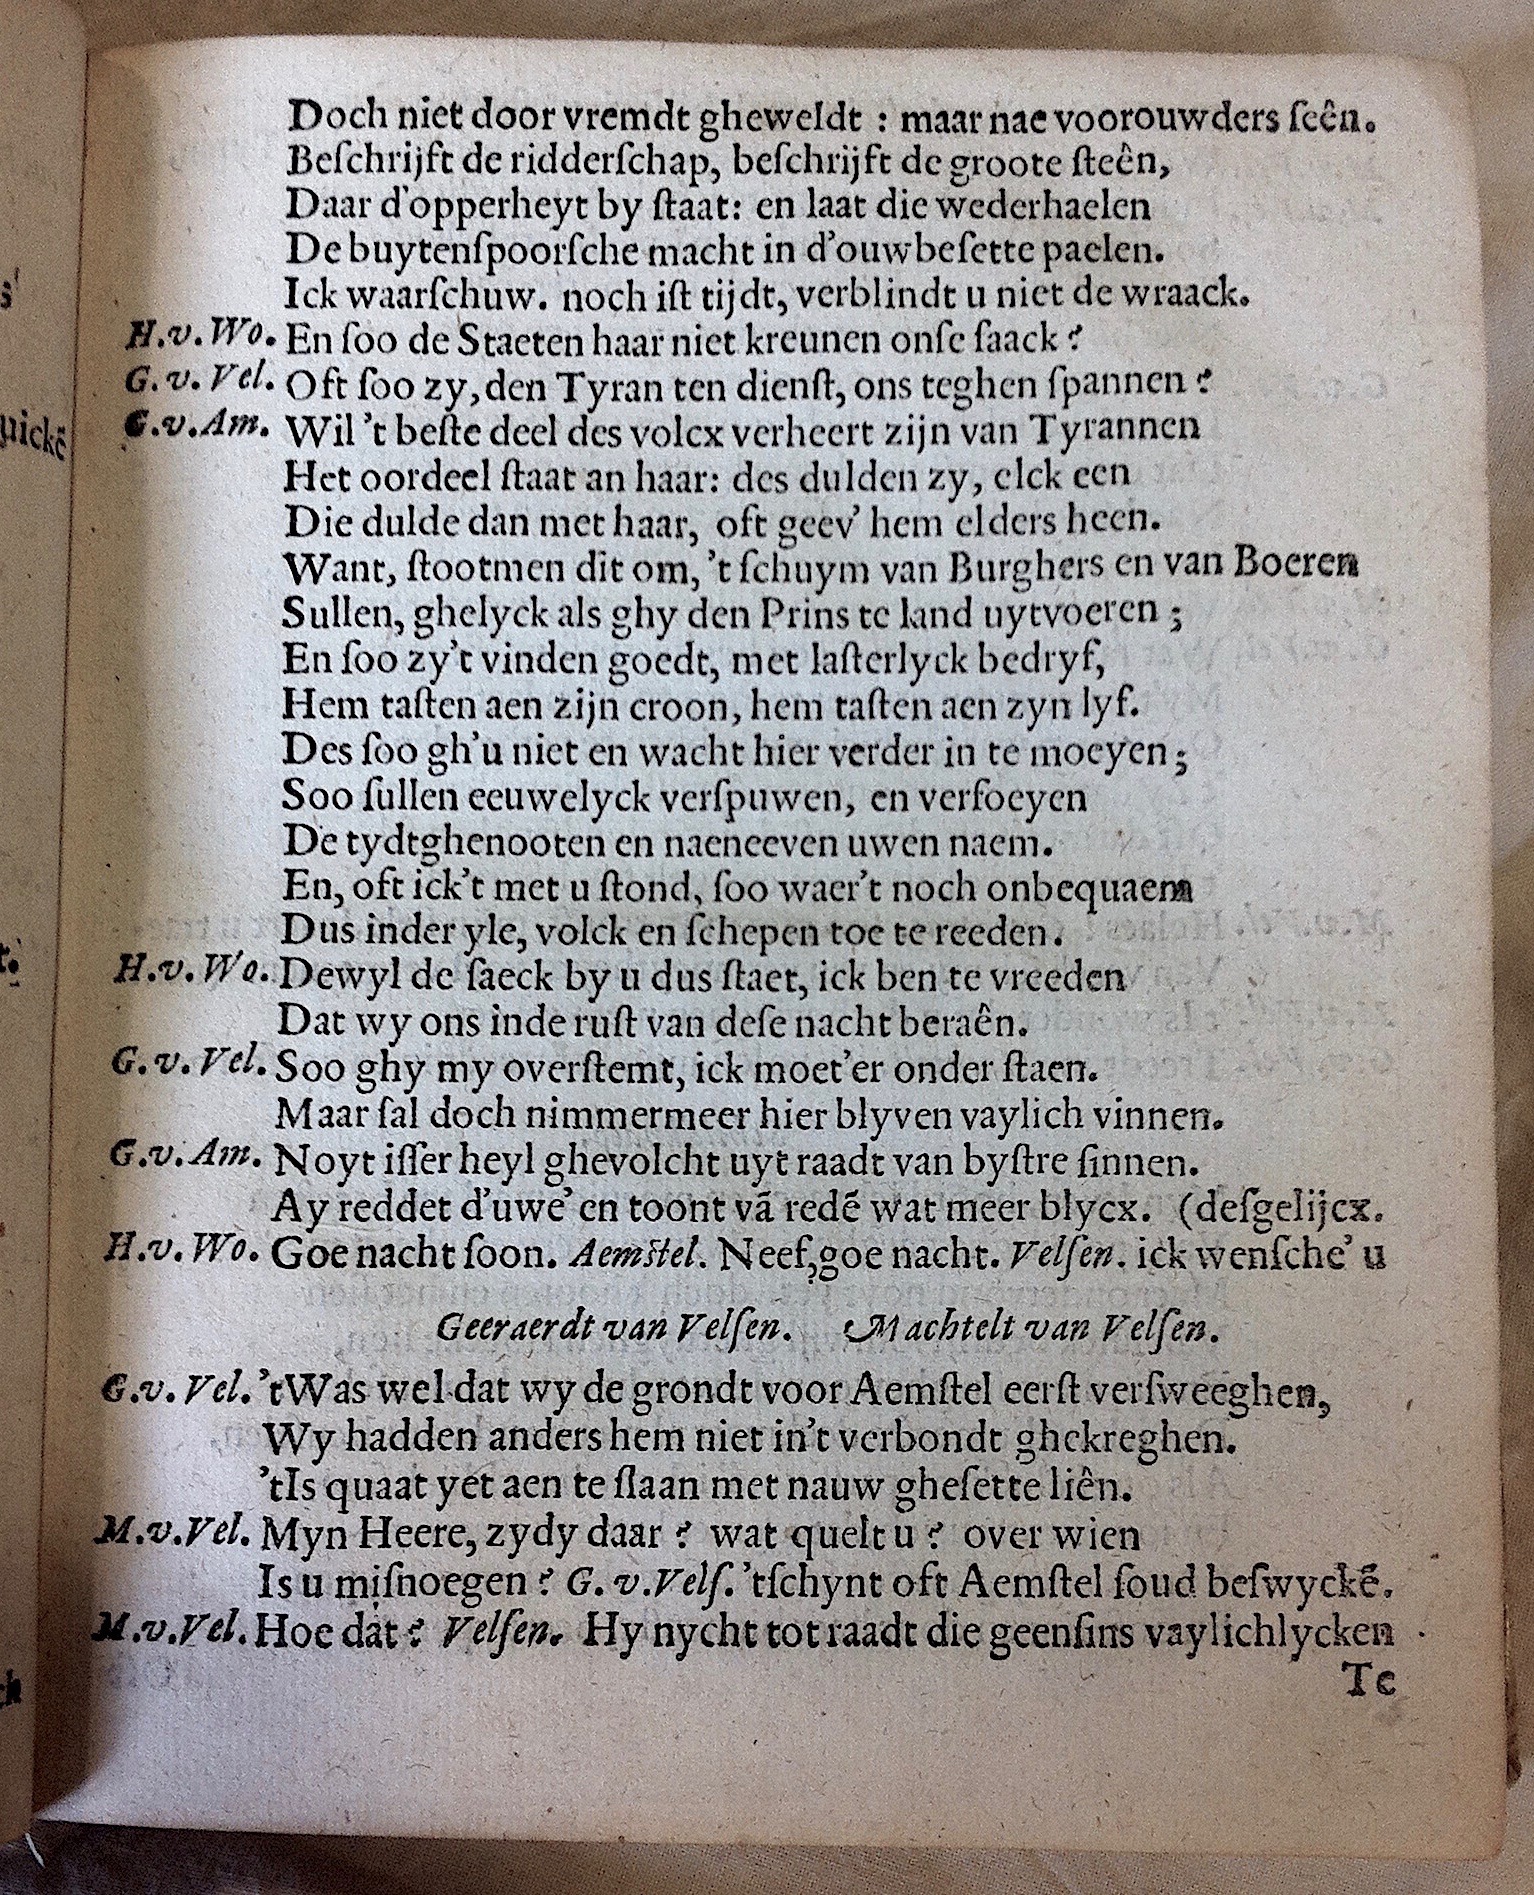 Doch niet door vremdt gheweldt : maar nae voorouwders ſeên.
Beſchrijft de ridderſchap, beſchrijft de groote ſteên,
Daar d'opperheyt by ſtaat: en laat die wederhaelen
De buytenſpoorſche macht in d'ouwbeſette paelen.
Ick waarſchuw. noch iſt tijdt, verblindt u niet de wraack.
H.v.Wo. En ſoo de Staeten haar niet kreunen onſe ſaack?
G.v.Vel. Oft ſoo zy, den Tyran ten dienſt, ons teghen ſpannen?
G.v.Am. Wil 't beſte deel des volcx verheert zijn van Tyrannen
Het oordeel ſtaat an haar: des dulden zy, elck een
Die dulde dan met haar, oft geev' hem elders heen.
Want, ſtootmen dit om, 't ſchuym van Burghers en van Boeren
Sullen, ghelyck als ghy den Prins te land uytvoeren;
En ſoo zy't vinden goedt, met laſterlyck bedryf,
Hem taſten aen zijn croon, hem taſten aen zyn lyf.
Des ſoo gh'u niet en wacht hier verder in te moeyen;
Soo ſullen eeuwelyck verſpuwen, en verfoeyen
De tydtghenooten en naeneeven uwen naem.
En, oft ick't met u ſtond, ſoo waer't noch onbequaem
Dus inder yle, volck en ſchepen toe te reeden.
H.v.Wo. Dewyl de ſaeck by u dus ſtaet, ick ben te vreeden
Dat wy ons inde ruſt van deſe nacht beraên.
G.v.Vel. Soo ghy my overſtemt, ick moet'er onder ſtaen.
Maar ſal doch nimmermeer hier blyven vaylich vinnen.
G.v.Am. Noyt iſſer heyl ghevolcht uyt raadt van byſtre ſinnen.
Ay reddet d'uwe' en toont vã redẽ wat meer blycx. (deſgelijcx.
H.v.Wo. Goe nacht ſoon. Aemſtel. Neef, goe nacht. Velſen. ick wenſche' u
Geeraerdt van Velſen. Machtelt van Velſen.
G.v.Vel. 'tWas wel dat wy de grondt voor Aemſtel eerſt verſweeghen,
Wy hadden anders hem niet in't verbondt ghekreghen.
'tIs quaat yet aen te ſlaan met nauw gheſette liên.
M.v.Vel. Myn Heere, zydy daar? wat quelt u? over wien
Is u miſnoegen? G.v.Velſ. 'tſchynt oft Aemſtel ſoud beſwyckẽ.
M.v.Vel. Hoe dat? Velſen. Hy nycht tot raadt die geenſins vaylichlycken
Te